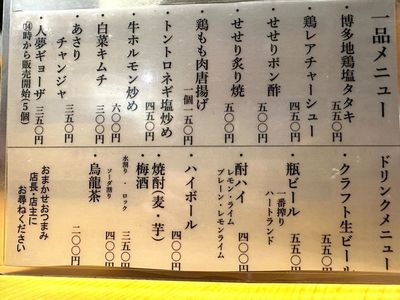 一品メニュー
・博多地鶏塩タタキ
五五〇円
・鶏レアチャーシュー
四五〇円
・せせりポン酢
五〇〇円
・せせり炙り焼
五〇〇円
・鶏もも肉唐揚げ
一個一五〇円
・トントロネギ塩炒め
四五〇円
・牛ホルモン炒め
六〇〇円
・白菜キムチ
三〇〇円
・あさり
チャンジャ
三五〇円
・人夢ギョーザ(5個)
三五〇円
⑭時から販売開始
ドリンクメニュー
・クラフト生ビール
五五〇円
・瓶ビール
一番搾り
ハートランド
五五〇円
・酎ハイ
レモン・ライム
プレーン・レモンライム
四〇〇円
・ハイボール
四〇〇円
・焼酎(麦・芋)
四〇〇円
・梅酒
水割り・ロック
三五〇円
ソーダ割り
四〇〇円
・烏龍茶
二〇〇円
おまかせおつまみ
店長・店主に
お尋ねください